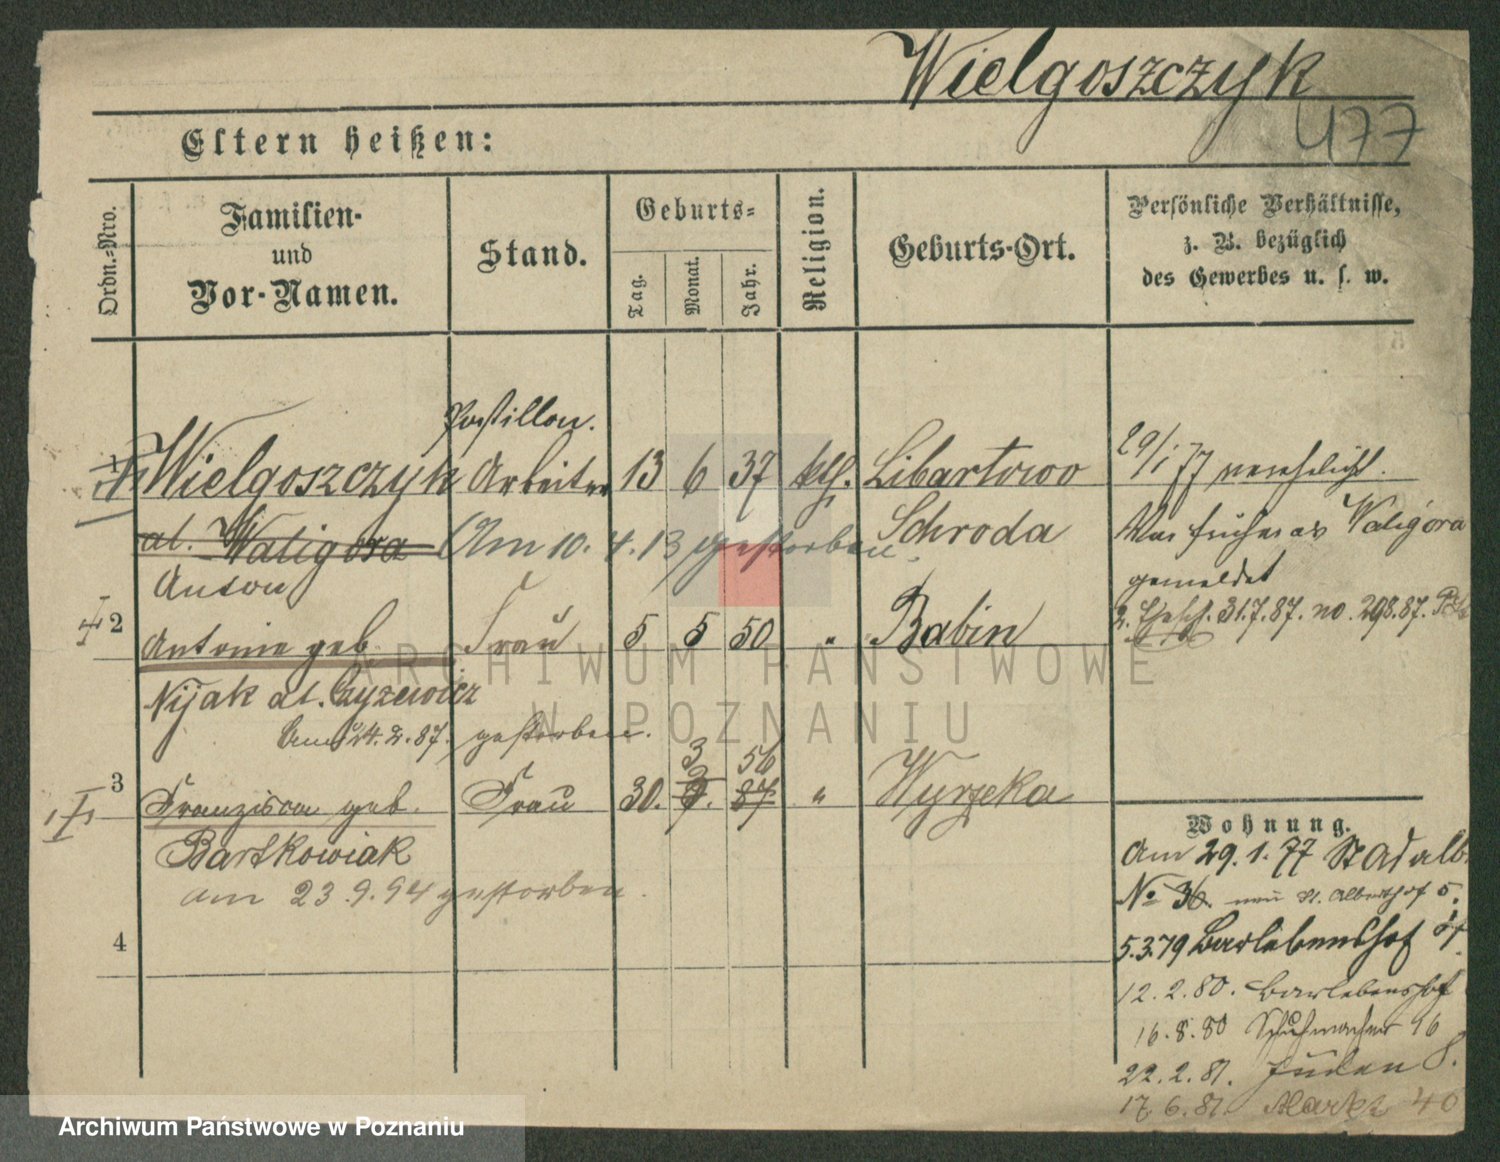 Wielgoszczyk
477
Eltern heißen:
Ordn.-Nro.
Familien-
und
Vor-Namen.
Stand.
Geburts-
Tag.
Monat.
Jahr.
Religion.
Geburts-Ort.
Persönliche Verhältnisse,
z. B. bezüglich
des Gewerbes u. s. w.
Postillon.
1 Wielgoszczyk Arbeiter 13 6 37 kth. Libartowo
al. Waligora (Am 10. 4. 13 gestorben Schroda
Anton
29/1 77 verehelicht.
War früher als Waligóra
gemeldet
2. Ehesch. 31.7.87. no. 298.87.
2 Antonie geb. Frau 5 5 50 " Babin
Nijak al. Czyzewicz
Am 24. 2. 87. gestorben.
3 56
3 Franziska geb. Frau 30. 9. 87 " Wyrzeka
Bartkowiak
am 23. 9. 94 gestorben.
4
Wohnung.
Am 29. 1. 77 St Adalb.
No 36. neu St. Alberthof 5.
5.3.79 Barlebenshof
12. 2. 80. Barlebenshof
16. 8. 80 Schuhmacher 16
22. 2. 81. Juden 8.
17. 6. 81. Markt 40
ARCHIWUM PAŃSTWOWE
W POZNANIU
Archiwum Państwowe w Poznaniu